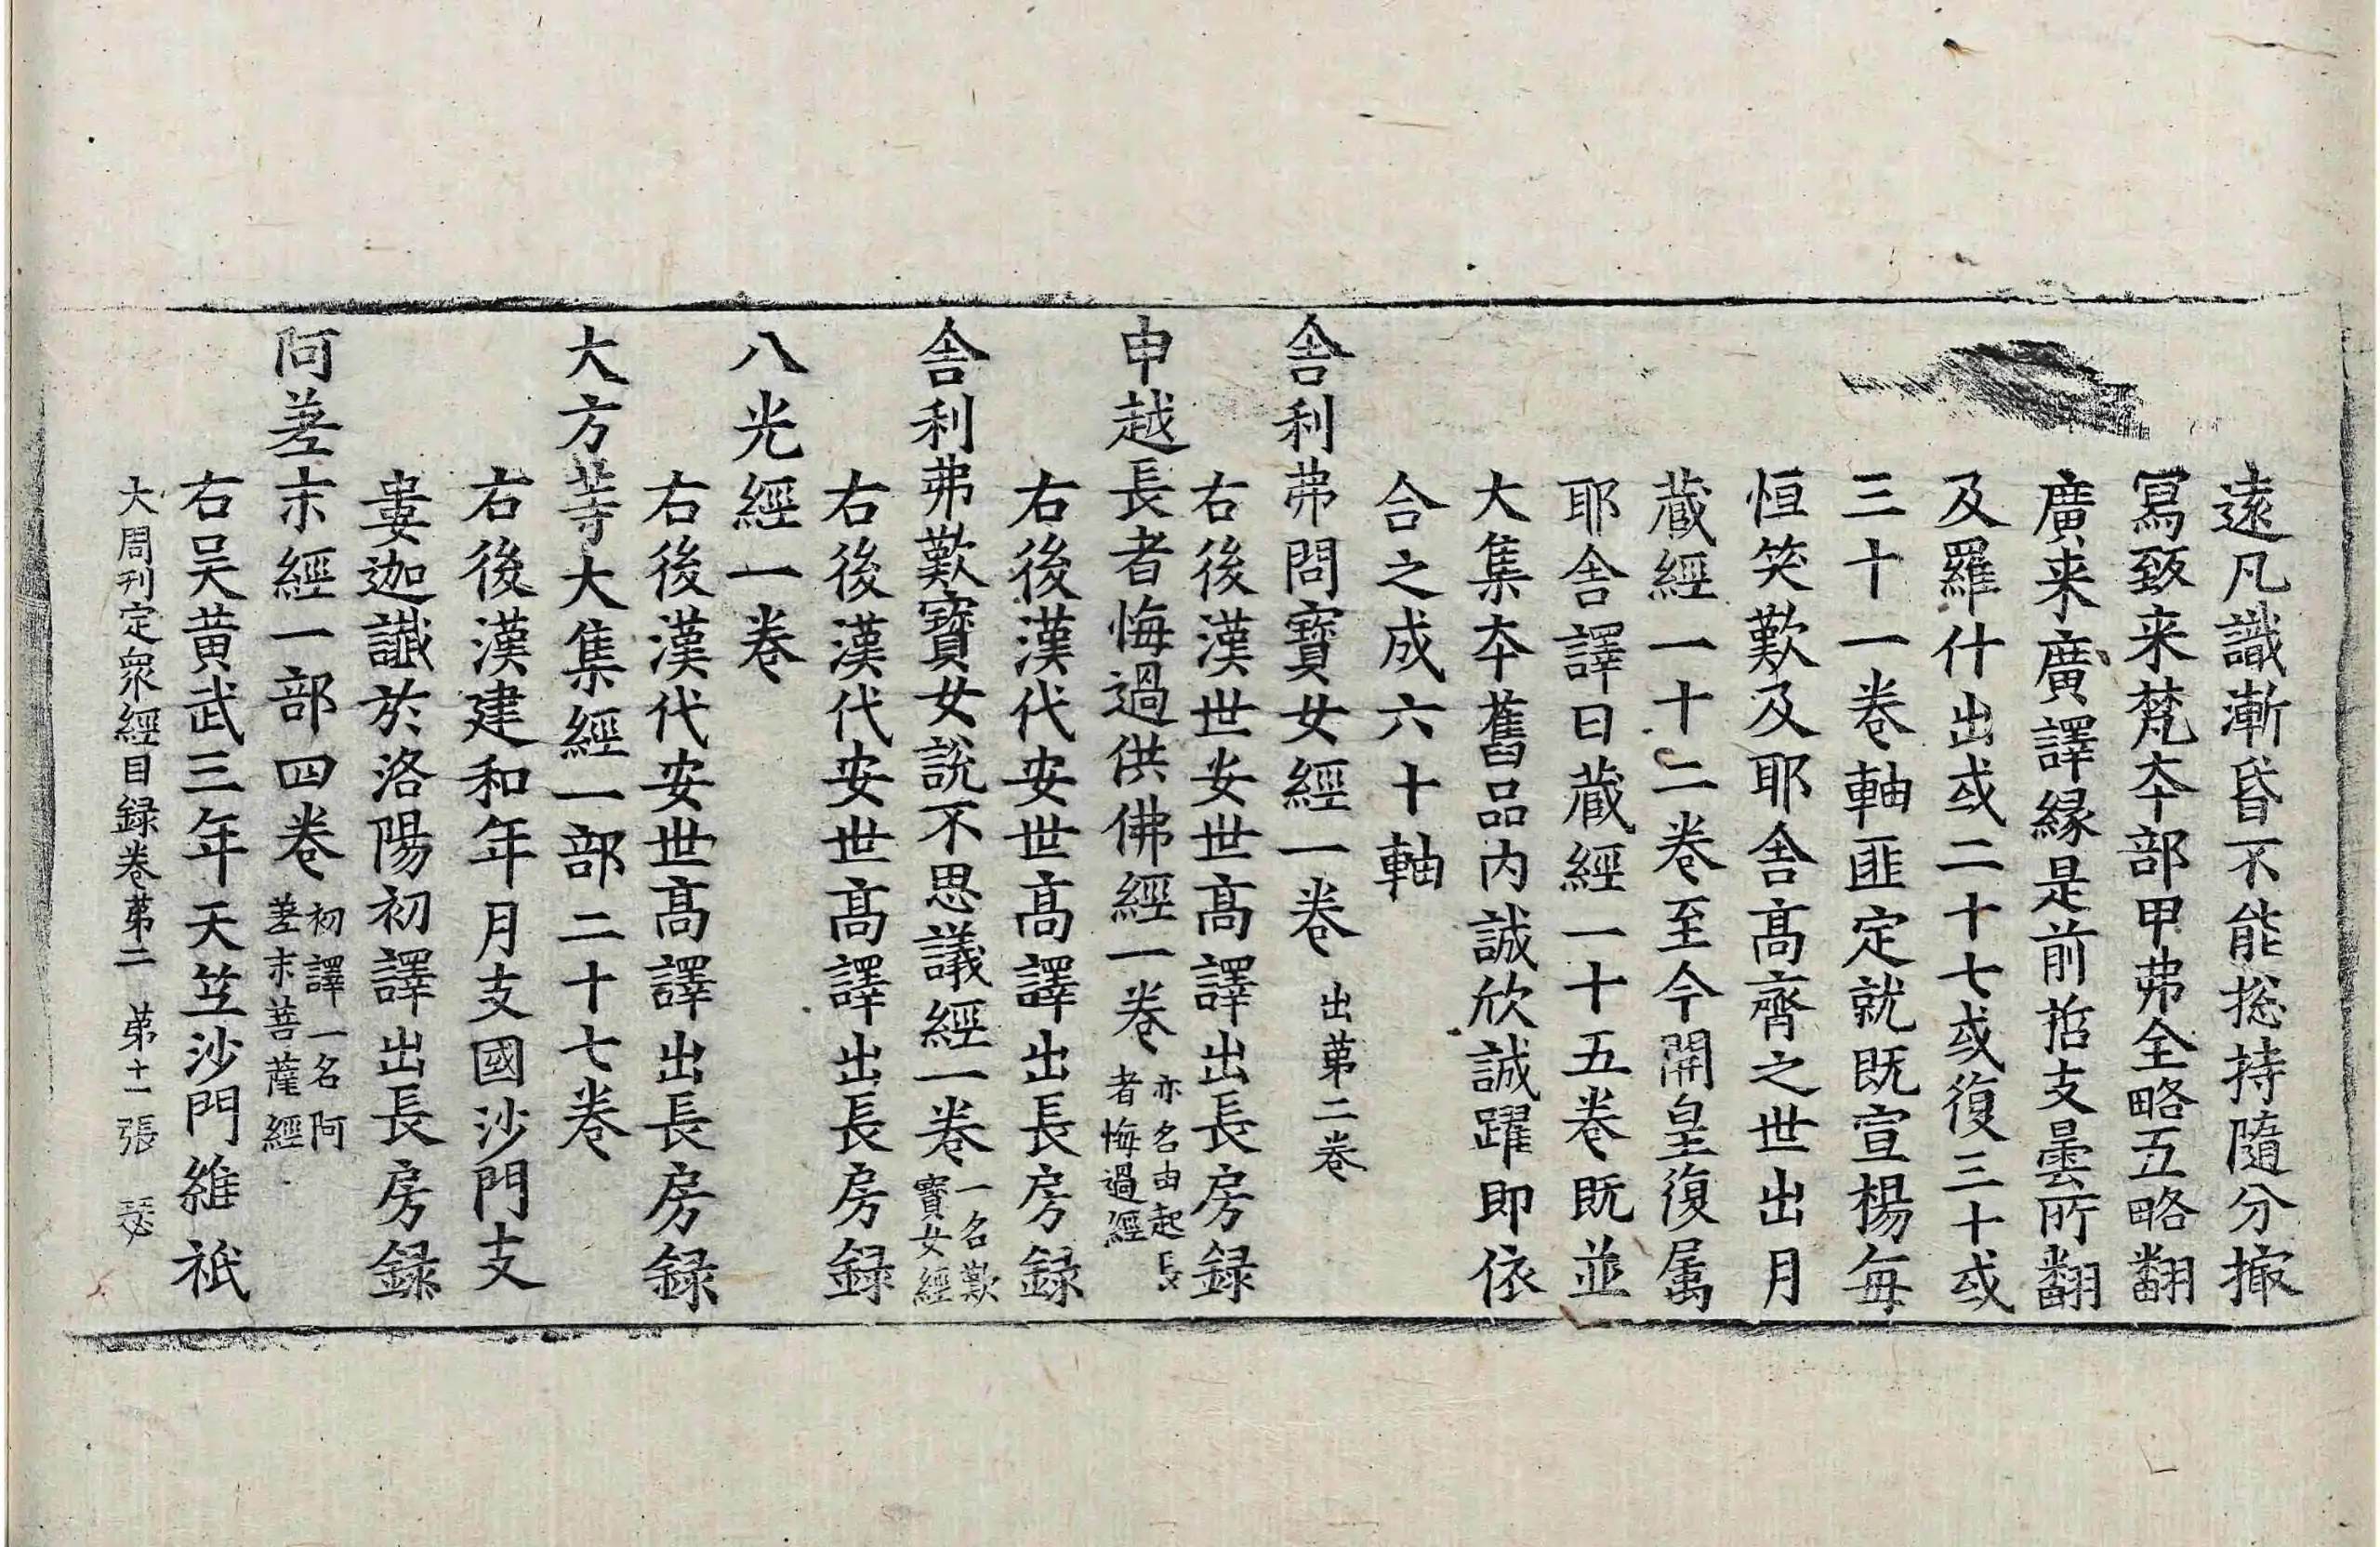 遠凡識漸昏不能揔持隨分撮
寫致来梵夲部甲弗全略五略翻
廣来廣譯緣是前哲支曇所翻
及羅什出或二十七或復三十或
三十一卷軸匪定就既宣楊每
恒笑歎及耶舍髙齊之世出月
藏經一十二卷至今開皇復属
耶舍譯日藏經一十五卷既並
大集夲舊品内誠欣誠躍即依
合之成六十軸
舍利弗問寶女經一卷 出苐二卷
右後漢世安世髙譯出長房録
申越長者悔過供佛經一卷 亦名由起長者悔過經
右後漢代安世髙譯出長房録
舍利弗歎寶女說不思議經一卷 一名歎寶女經
右後漢代安世髙譯出長房録
八光經一卷
右後漢代安世髙譯出長房録
大方等大集經一部二十七卷
右後漢建和年月支國沙門支
婁迦讖於洛陽初譯出長房録
阿差末經一部四卷 初譯一名阿差末菩薩經
右吴黄武三年天竺沙門維祇
大周刋定衆經目録卷苐二 苐十一張 瑟